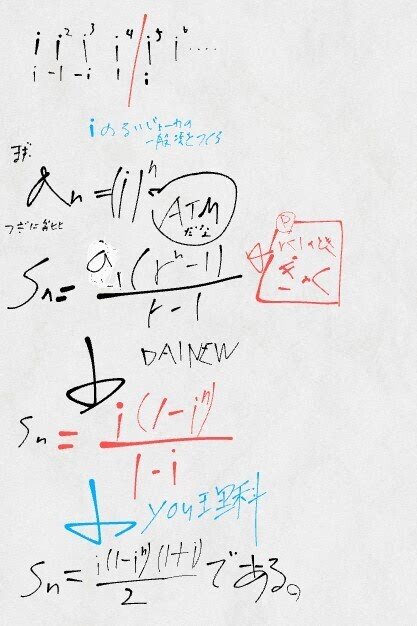 i i² i³ i⁴ i⁵ i⁶ ....
i -1 -i 1 i
iのるいじょーわの
一般項をつくる
まず
aₙ=(i)ⁿ
ATM
だよ
つぎに公比
Sₙ= a₁(rⁿ-1) / r-1
P
r<1のとき
ぎゃく
DAINEW
Sₙ= i(1-iⁿ) / 1-i
you理科
Sₙ= i(1-iⁿ)(1+i) / 2 である。